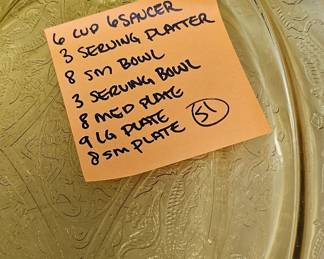 6 CUP 6 SAUCER
3 SERVING PLATTER
8 SM BOWL
3 SERVING BOWL
8 MED PLATE
9 LG PLATE
8 SM PLATE 51